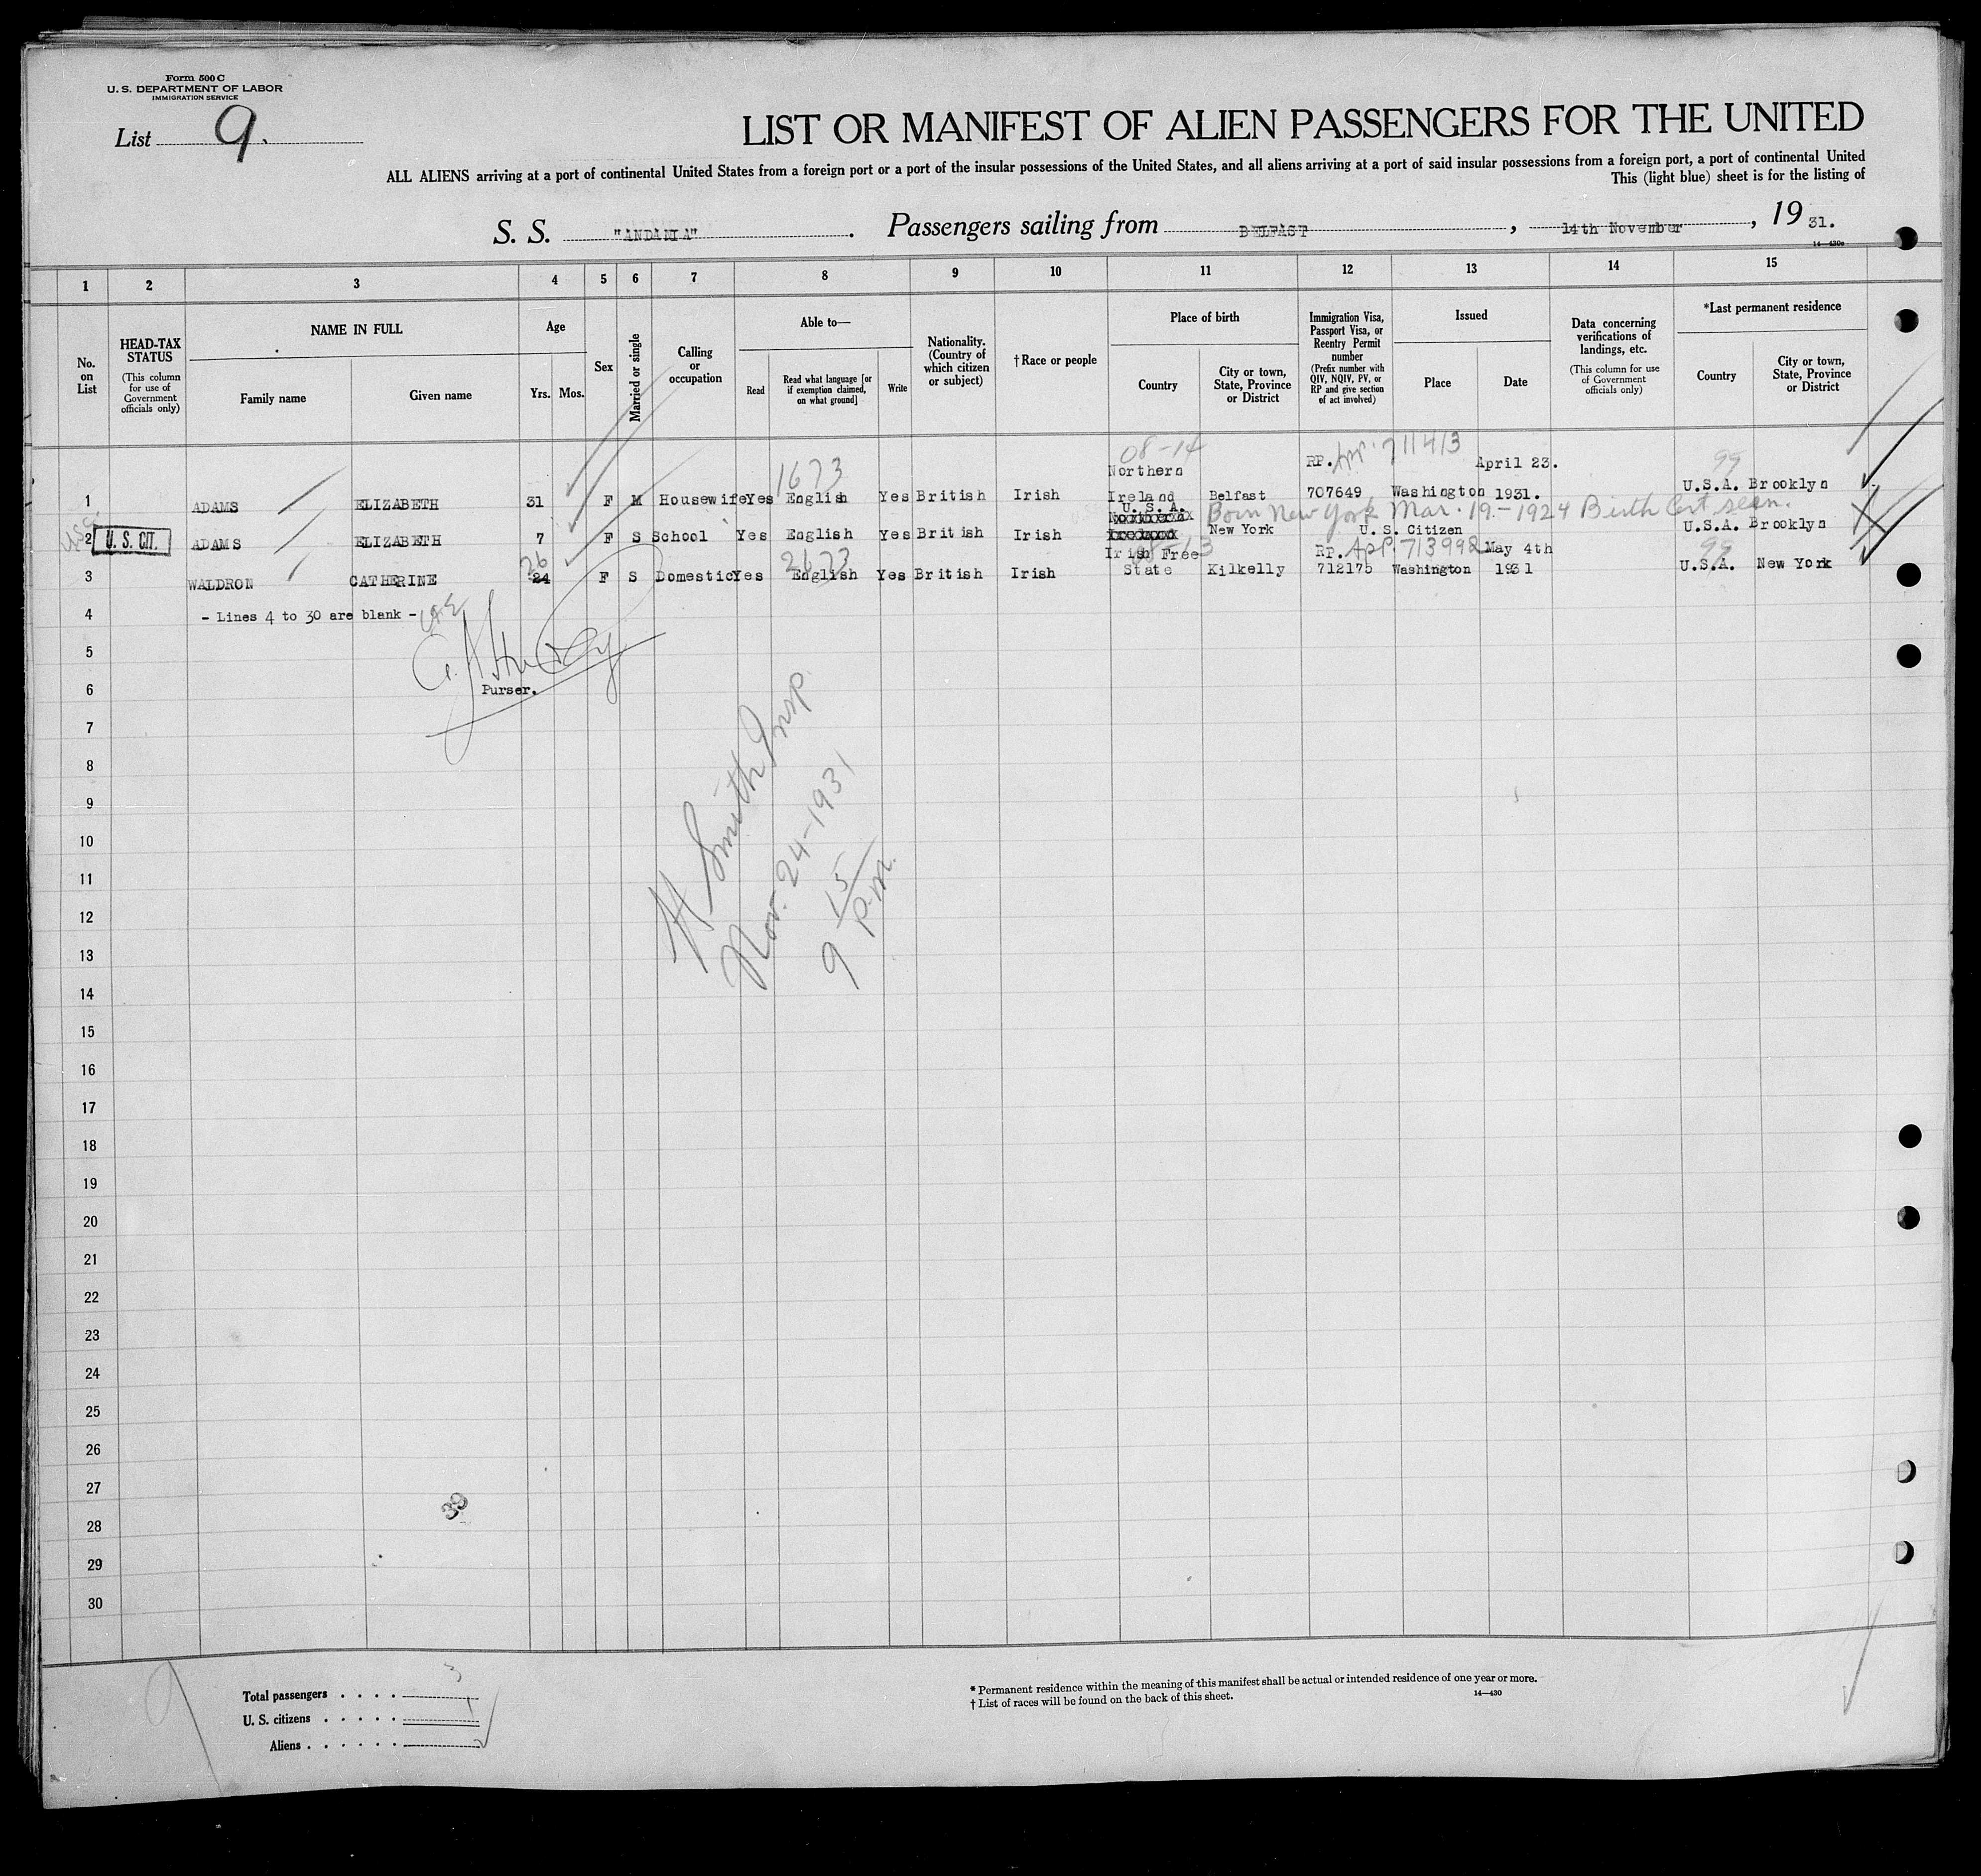 Form 500 C
U. S. DEPARTMENT OF LABOR
IMMIGRATION SERVICE
List 9.
LIST OR MANIFEST OF ALIEN PASSENGERS FOR THE UNITED
ALL ALIENS arriving at a port of continental United States from a foreign port or a port of the insular possessions of the United States, and all aliens arriving at a port of said insular possessions from a foreign port, a port of continental United
This (light blue) sheet is for the listing of
S. S. "ANDANIA". Passengers sailing from BELFAST, 14th November, 19 31.
14—430c
1 2 3 4 5 6 7 8 9 10 11 12 13 14 15
No. on List
HEAD-TAX STATUS
(This column for use of Government officials only)
NAME IN FULL
Family name
Given name
Age
Yrs. Mos.
Sex
Married or single
Calling or occupation
Able to—
Read
Read what language [or if exemption claimed, on what ground]
Write
Nationality. (Country of which citizen or subject)
†Race or people
Place of birth
Country
City or town, State, Province or District
Immigration Visa, Passport Visa, or Reentry Permit number
(Prefix number with QIV, NQIV, PV, or RP and give section of act involved)
Issued
Place
Date
Data concerning verifications of landings, etc.
(This column for use of Government officials only)
*Last permanent residence
Country
City or town, State, Province or District
08-14
Northern RP. 711413 April 23. 99
1673
1 ADAMS ELIZABETH 31 F M Housewife Yes English Yes British Irish Ireland Belfast 707649 Washington 1931. U.S.A. Brooklyn
U.S.A. Born New York Mar. 19.-1924 Birth Cert seen.
2 U. S. CIT. ADAMS ELIZABETH 7 F S School Yes English Yes British Irish New York U. S. Citizen U.S.A. Brooklyn
26 2673 Irish Free RP. App. 713992 May 4th 99
3 WALDRON CATHERINE 24 F S Domestic Yes English Yes British Irish State Kilkelly 712175 Washington 1931 U.S.A. New York
4 - Lines 4 to 30 are blank -
5
6 Purser.
7
8
9
10
11
12
13
14
15
16
17
18
19
20
21
22
23
24
25
26
27
28
29
30
H Smith Insp.
Nov. 24-1931
9 15 P.M.
33
Total passengers . . . . 3
U. S. citizens . . . . . 1
Aliens . . . . . .
* Permanent residence within the meaning of this manifest shall be actual or intended residence of one year or more.
† List of races will be found on the back of this sheet.
14—430